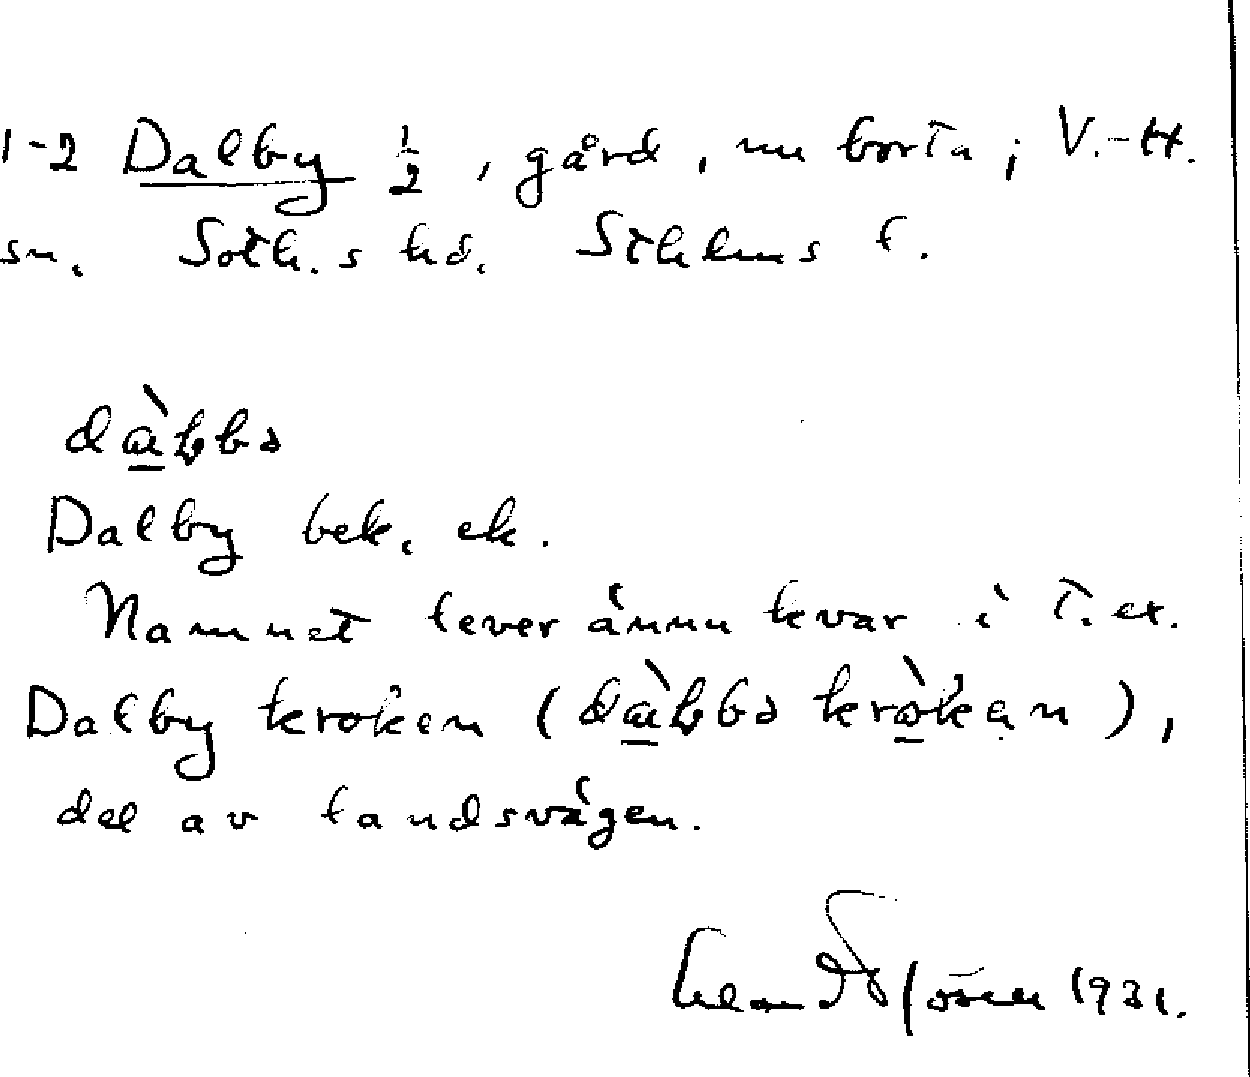 1-2 Dalby ½, gård, nu borta, i V.-H.
sn. Soth.s hd. Sthlms l.
dàbbə
Dalby bek. ek.
Namnet lever ännu kvar i t.ex.
Dalby kroken (dàbbə kròkən),
del av landsvägen.
1931.